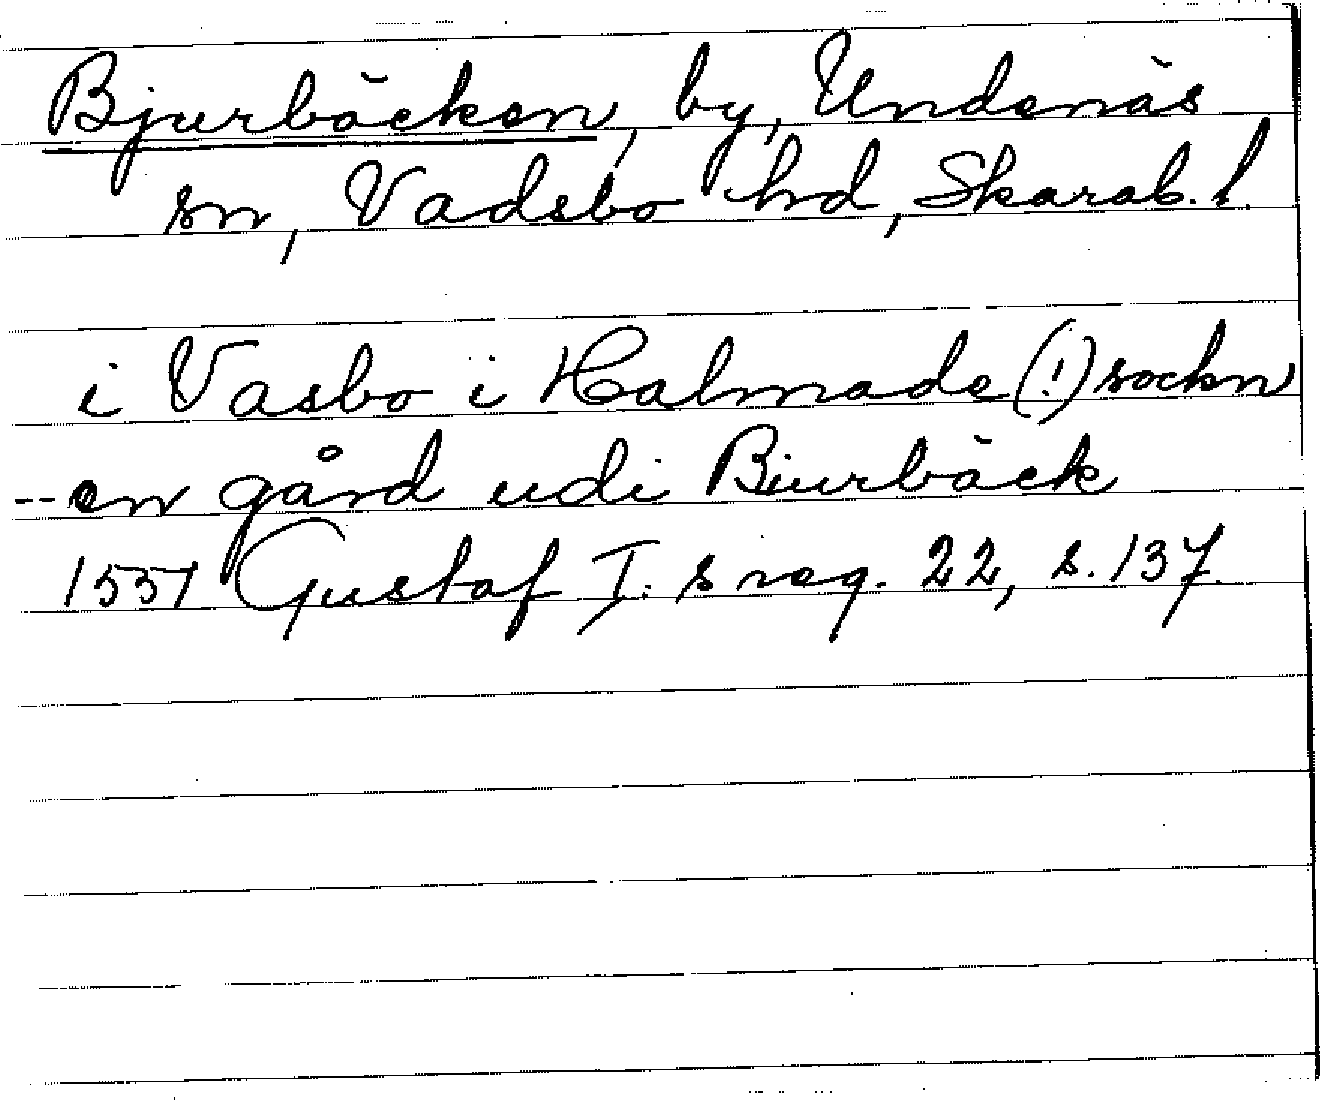 Bjurbäcken, by, Undenäs
sn, Vadsbo hd, Skarab. l.
i Vasbo i Halmade (!) sockn
-- en gård udi Biurbäck
1551 Gustaf I:s reg. 22, s. 137.